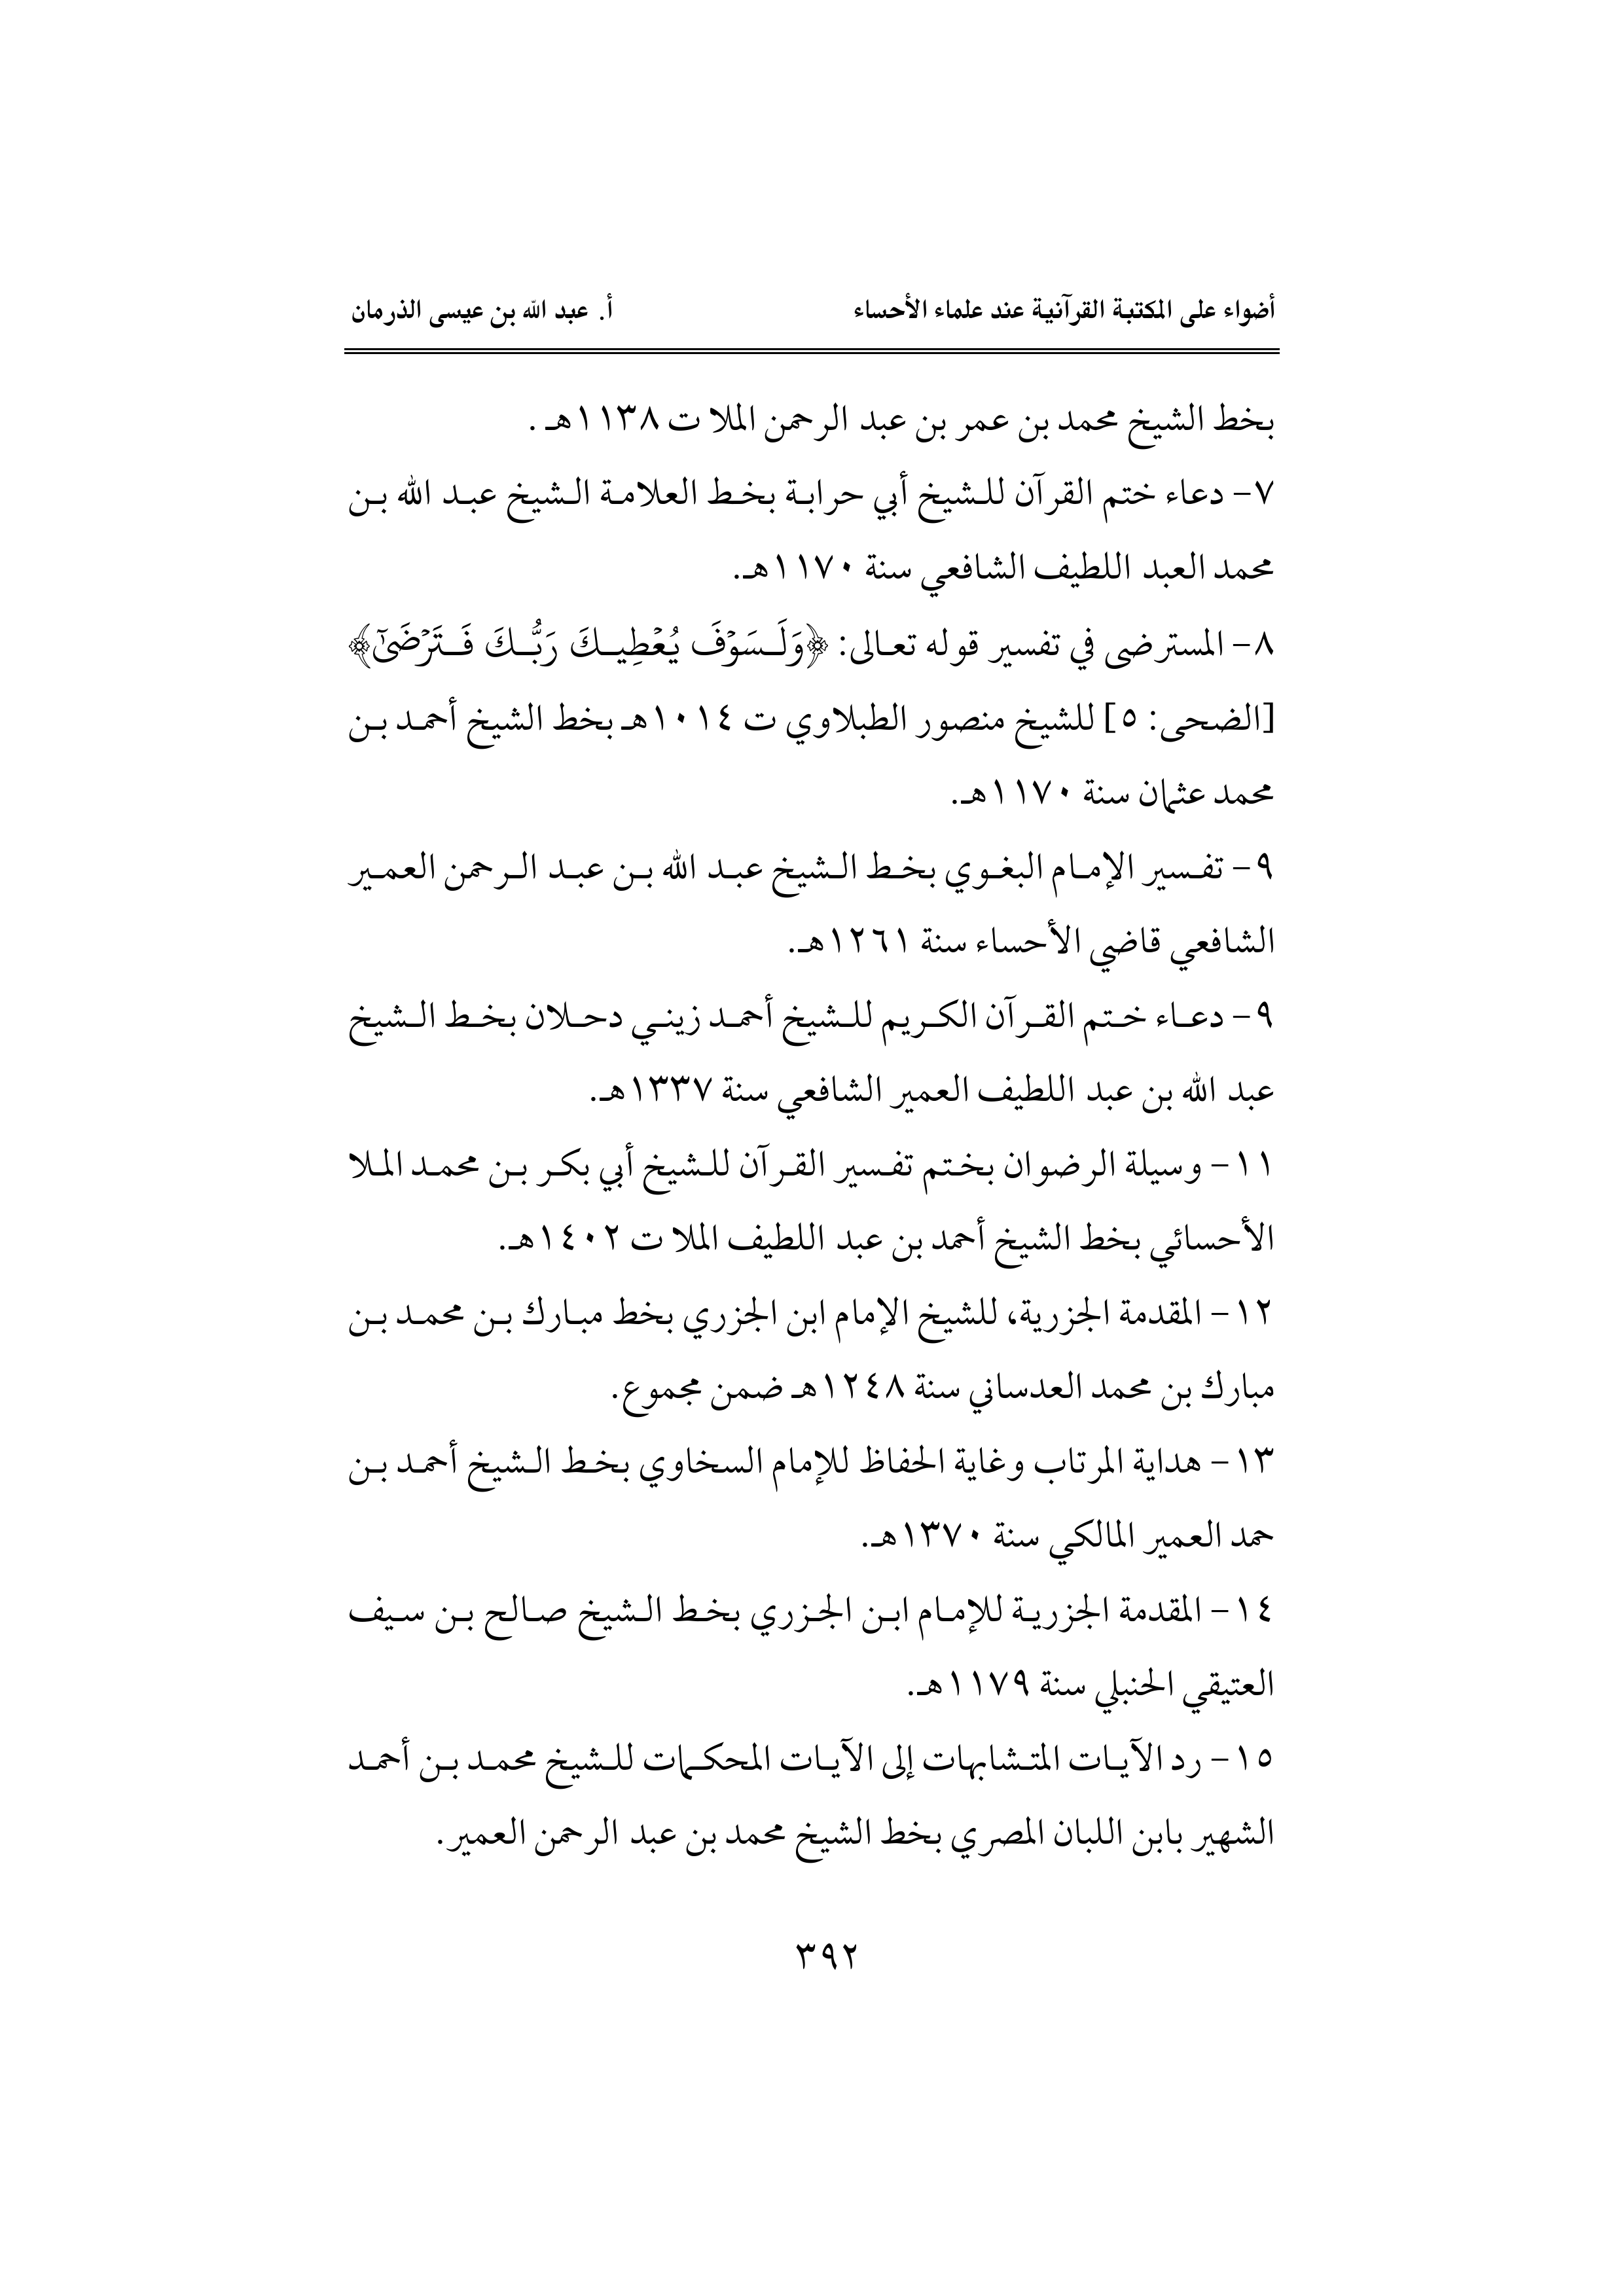 أضواء على المكتبة القرآنية عند علماء الأحساء أ. عبد الله بن عيسى الذرمان
بخط الشيخ محمد بن عمر بن عبد الرحمن الملا ت ١١٣٨هـ .
٧- دعاء ختم القرآن للشيخ أبي حرابة بخط العلامة الشيخ عبد الله بن
محمد العبد اللطيف الشافعي سنة ١١٧٠هـ.
٨- المسترضى في تفسير قوله تعالى: ﴿وَلَسَوْفَ يُعْطِيكَ رَبُّكَ فَتَرْضَىٰٓ﴾
[الضحى: ٥] للشيخ منصور الطبلاوي ت ١٠١٤هـ بخط الشيخ أحمد بن
محمد عثمان سنة ١١٧٠هـ.
٩- تفسير الإمام البغوي بخط الشيخ عبد الله بن عبد الرحمن العمير
الشافعي قاضي الأحساء سنة ١٢٦١هـ.
٩- دعاء ختم القرآن الكريم للشيخ أحمد زيني دحلان بخط الشيخ
عبد الله بن عبد اللطيف العمير الشافعي سنة ١٣٣٧هـ.
١١- وسيلة الرضوان بختم تفسير القرآن للشيخ أبي بكر بن محمد الملا
الأحسائي بخط الشيخ أحمد بن عبد اللطيف الملا ت ١٤٠٢هـ.
١٢- المقدمة الجزرية، للشيخ الإمام ابن الجزري بخط مبارك بن محمد بن
مبارك بن محمد العدساني سنة ١٢٤٨هـ ضمن مجموع.
١٣- هداية المرتاب وغاية الحفاظ للإمام السخاوي بخط الشيخ أحمد بن
حمد العمير المالكي سنة ١٣٧٠هـ.
١٤- المقدمة الجزرية للإمام ابن الجزري بخط الشيخ صالح بن سيف
العتيقي الحنبلي سنة ١١٧٩هـ.
١٥- رد الآيات المتشابهات إلى الآيات المحكمات للشيخ محمد بن أحمد
الشهير بابن اللبان المصري بخط الشيخ محمد بن عبد الرحمن العمير.
٣٩٢